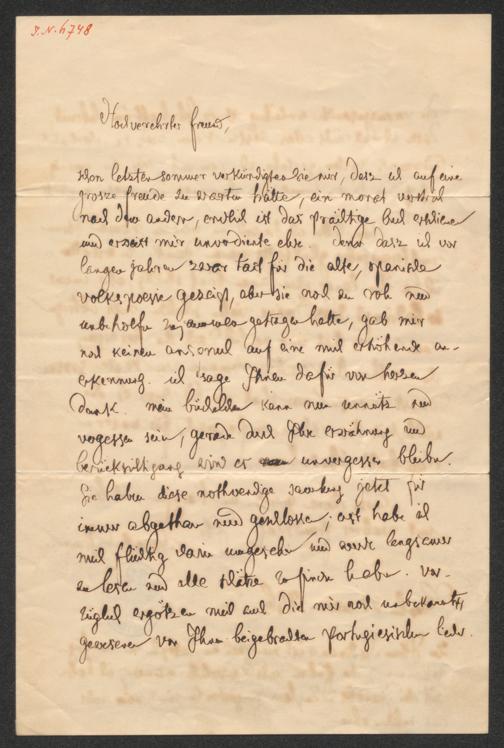 I.N. 4748
Hochverehrter freund,
schon letzten sommer verkündigten Sie mir, dasz ich auf eine
grosze freude zu warten hätte, ein monat verstrich
nach dem andern, endlich ist das prächtige buch erschienen
und erweist mir unverdiente ehre. denn dasz ich vor
langen jahren zwar tact für die alte, spanische
volkspoesie gezeigt, aber sie noch zu roh und
unbeholfen getragen hatte, gab mir
noch keinen anspruch auf eine mich erhöhende an-
erkennung. ich sage Ihnen dafür von herzen
dank. mein büchelchen kann nun unnütz und
vergessen sein, gerade durch Ihre erwähnung und
berücksichtigung wird es unvergessen bleiben.
Sie haben diese nothwendige jetzt für
immer abgethan und geschlossen; erst habe ich
mich flüchtig darin umgesehen und werde langsamer
zu lesen und alle plätze zu finden haben. vor-
züglich ergötzen mich auch die mir noch unbekannt
gewesenen von Ihnen beigebrachten portugiesischen lieder.